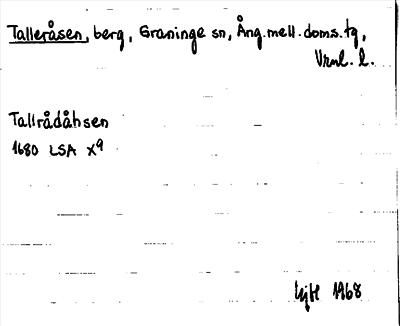 Talleråsen, berg, Graninge sn, Ång.mell.doms.tg,
Vrnl. l.
Tallrådåhsen
1680 LSA X9
1968